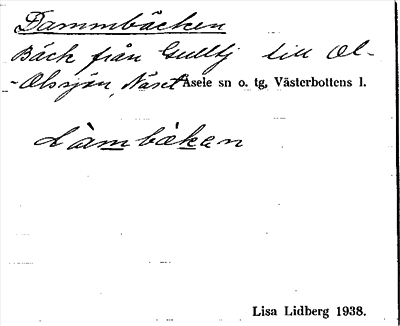 Dammbäcken
Bäck från Gulltj till Ol-
-Olssjön, Näset Åsele sn o. tg, Västerbottens l.
dàmbèkan
Lisa Lidberg 1938.